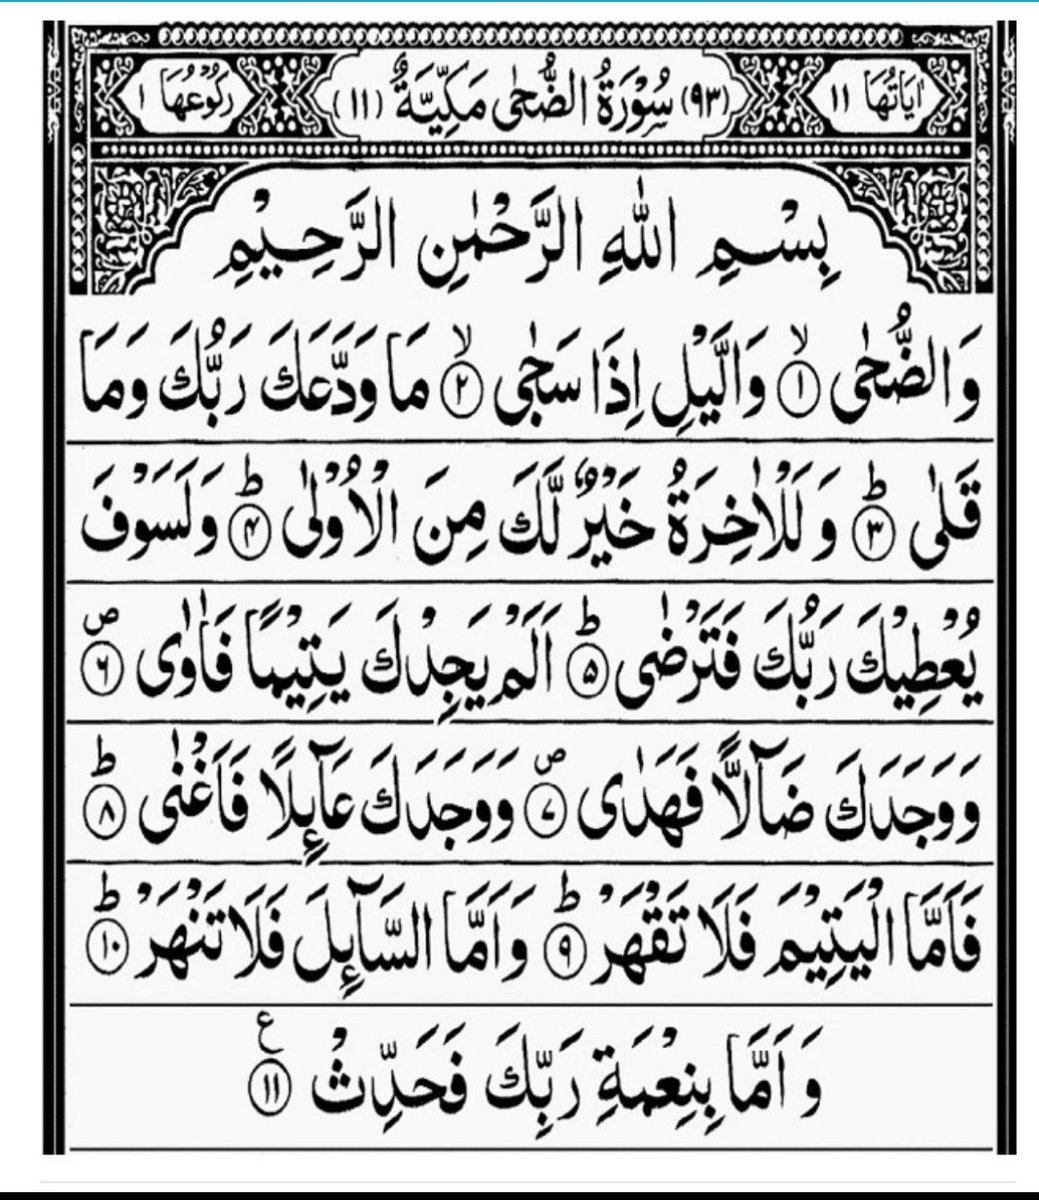 اٰيَاتُهَا ١١ (٩٣) سُوْرَةُ الضُّحٰى مَكِّيَّةٌ (١١) رُكُوْعُهَا ١
بِسْمِ اللّٰهِ الرَّحْمٰنِ الرَّحِيْمِ
وَالضُّحٰى ۙ‏﴿۱﴾ وَالَّيْلِ اِذَا سَجٰى ۙ‏﴿۲﴾ مَا وَدَّعَكَ رَبُّكَ وَمَا
قَلٰى ؕ‏﴿۳﴾ وَلَلْاٰخِرَةُ خَيْرٌ لَّكَ مِنَ الْاُوْلٰى ؕ‏﴿۴﴾ وَلَسَوْفَ
يُعْطِيْكَ رَبُّكَ فَتَرْضٰى ؕ‏﴿۵﴾ اَلَمْ يَجِدْكَ يَتِيْمًا فَاٰوٰى ۪‏﴿۶﴾
وَوَجَدَكَ ضَآلًّا فَهَدٰى ۪‏﴿۷﴾ وَوَجَدَكَ عَآىِٕلًا فَاَغْنٰى ؕ‏﴿۸﴾
فَاَمَّا الْيَتِيْمَ فَلَا تَقْهَرْ ؕ‏﴿۹﴾ وَاَمَّا السَّآىِٕلَ فَلَا تَنْهَرْ ؕ‏﴿۱۰﴾
وَاَمَّا بِنِعْمَةِ رَبِّكَ فَحَدِّثْ ﴿۱۱﴾ ع